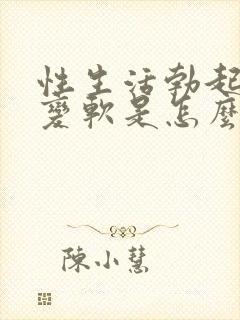 性生活勃起
變軟是怎麼
陳小慧